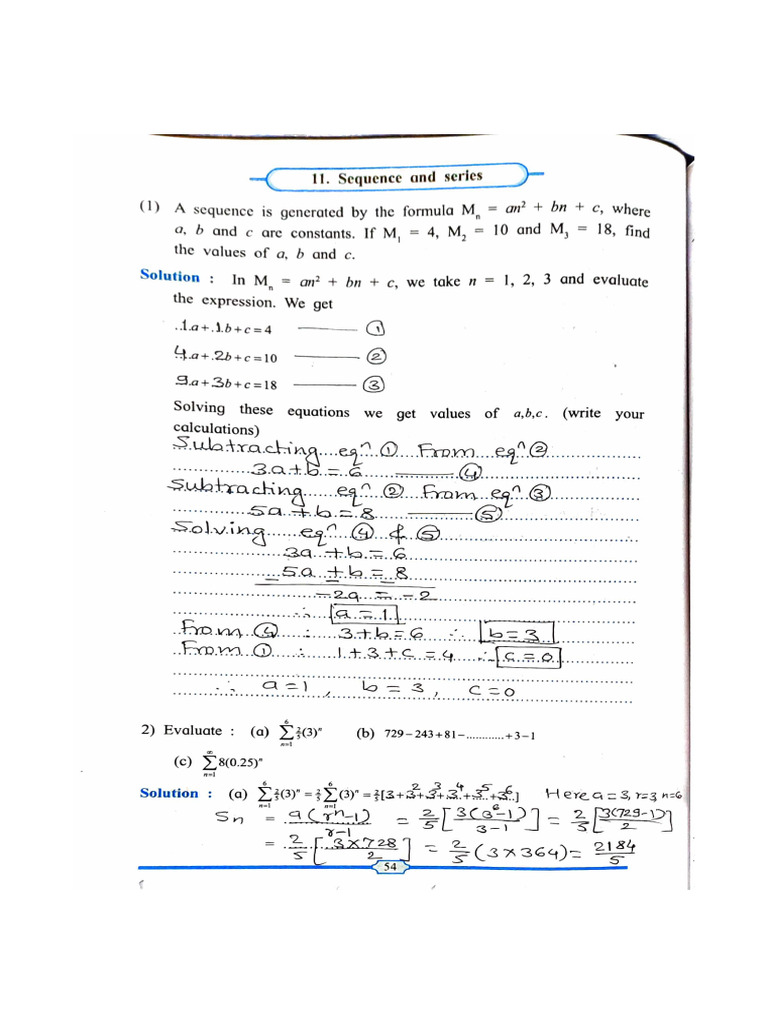 11. Sequence and series
(1) A sequence is generated by the formula Mₙ = an² + bn + c, where
a, b and c are constants. If M₁ = 4, M₂ = 10 and M₃ = 18, find
the values of a, b and c.
Solution : In Mₙ = an² + bn + c, we take n = 1, 2, 3 and evaluate
the expression. We get
..1.a+.1.b+c=4 ——— ①
4.a+.2b+c=10 ——— ②
9.a+3b+c=18 ——— ③
Solving these equations we get values of a,b,c. (write your
calculations)
Subtracting eqⁿ ① From eqⁿ ②
3a+b=6 ——— ④
Subtracting eqⁿ ② From eqⁿ ③
5a+b=8 ——— ⑤
Solving eqⁿ ④ & ⑤
3a+b=6
5a+b=8
- - -
-2a = -2
∴ a=1
From ④ : 3+b=6 ∴ b=3
From ① : 1+3+c=4 ∴ c=0
∴ a=1, b=3, c=0
2) Evaluate : (a) ∑ₙ₌₁⁶ 2/5(3)ⁿ (b) 729−243+81−............+3−1
(c) ∑ₙ₌₁^∞ 8(0.25)ⁿ
Solution : (a) ∑ₙ₌₁⁶ 2/5(3)ⁿ = 2/5 ∑ₙ₌₁⁶ (3)ⁿ = 2/5[3+3²+3³+3⁴+3⁵+3⁶] Here a=3, r=3 n=6
Sn = a(rⁿ-1)/r-1 = 2/5 [3(3⁶-1)/3-1] = 2/5 [3(729-1)/2]
= 2/5 [3×728/2] = 2/5 (3×364) = 2184/5
54